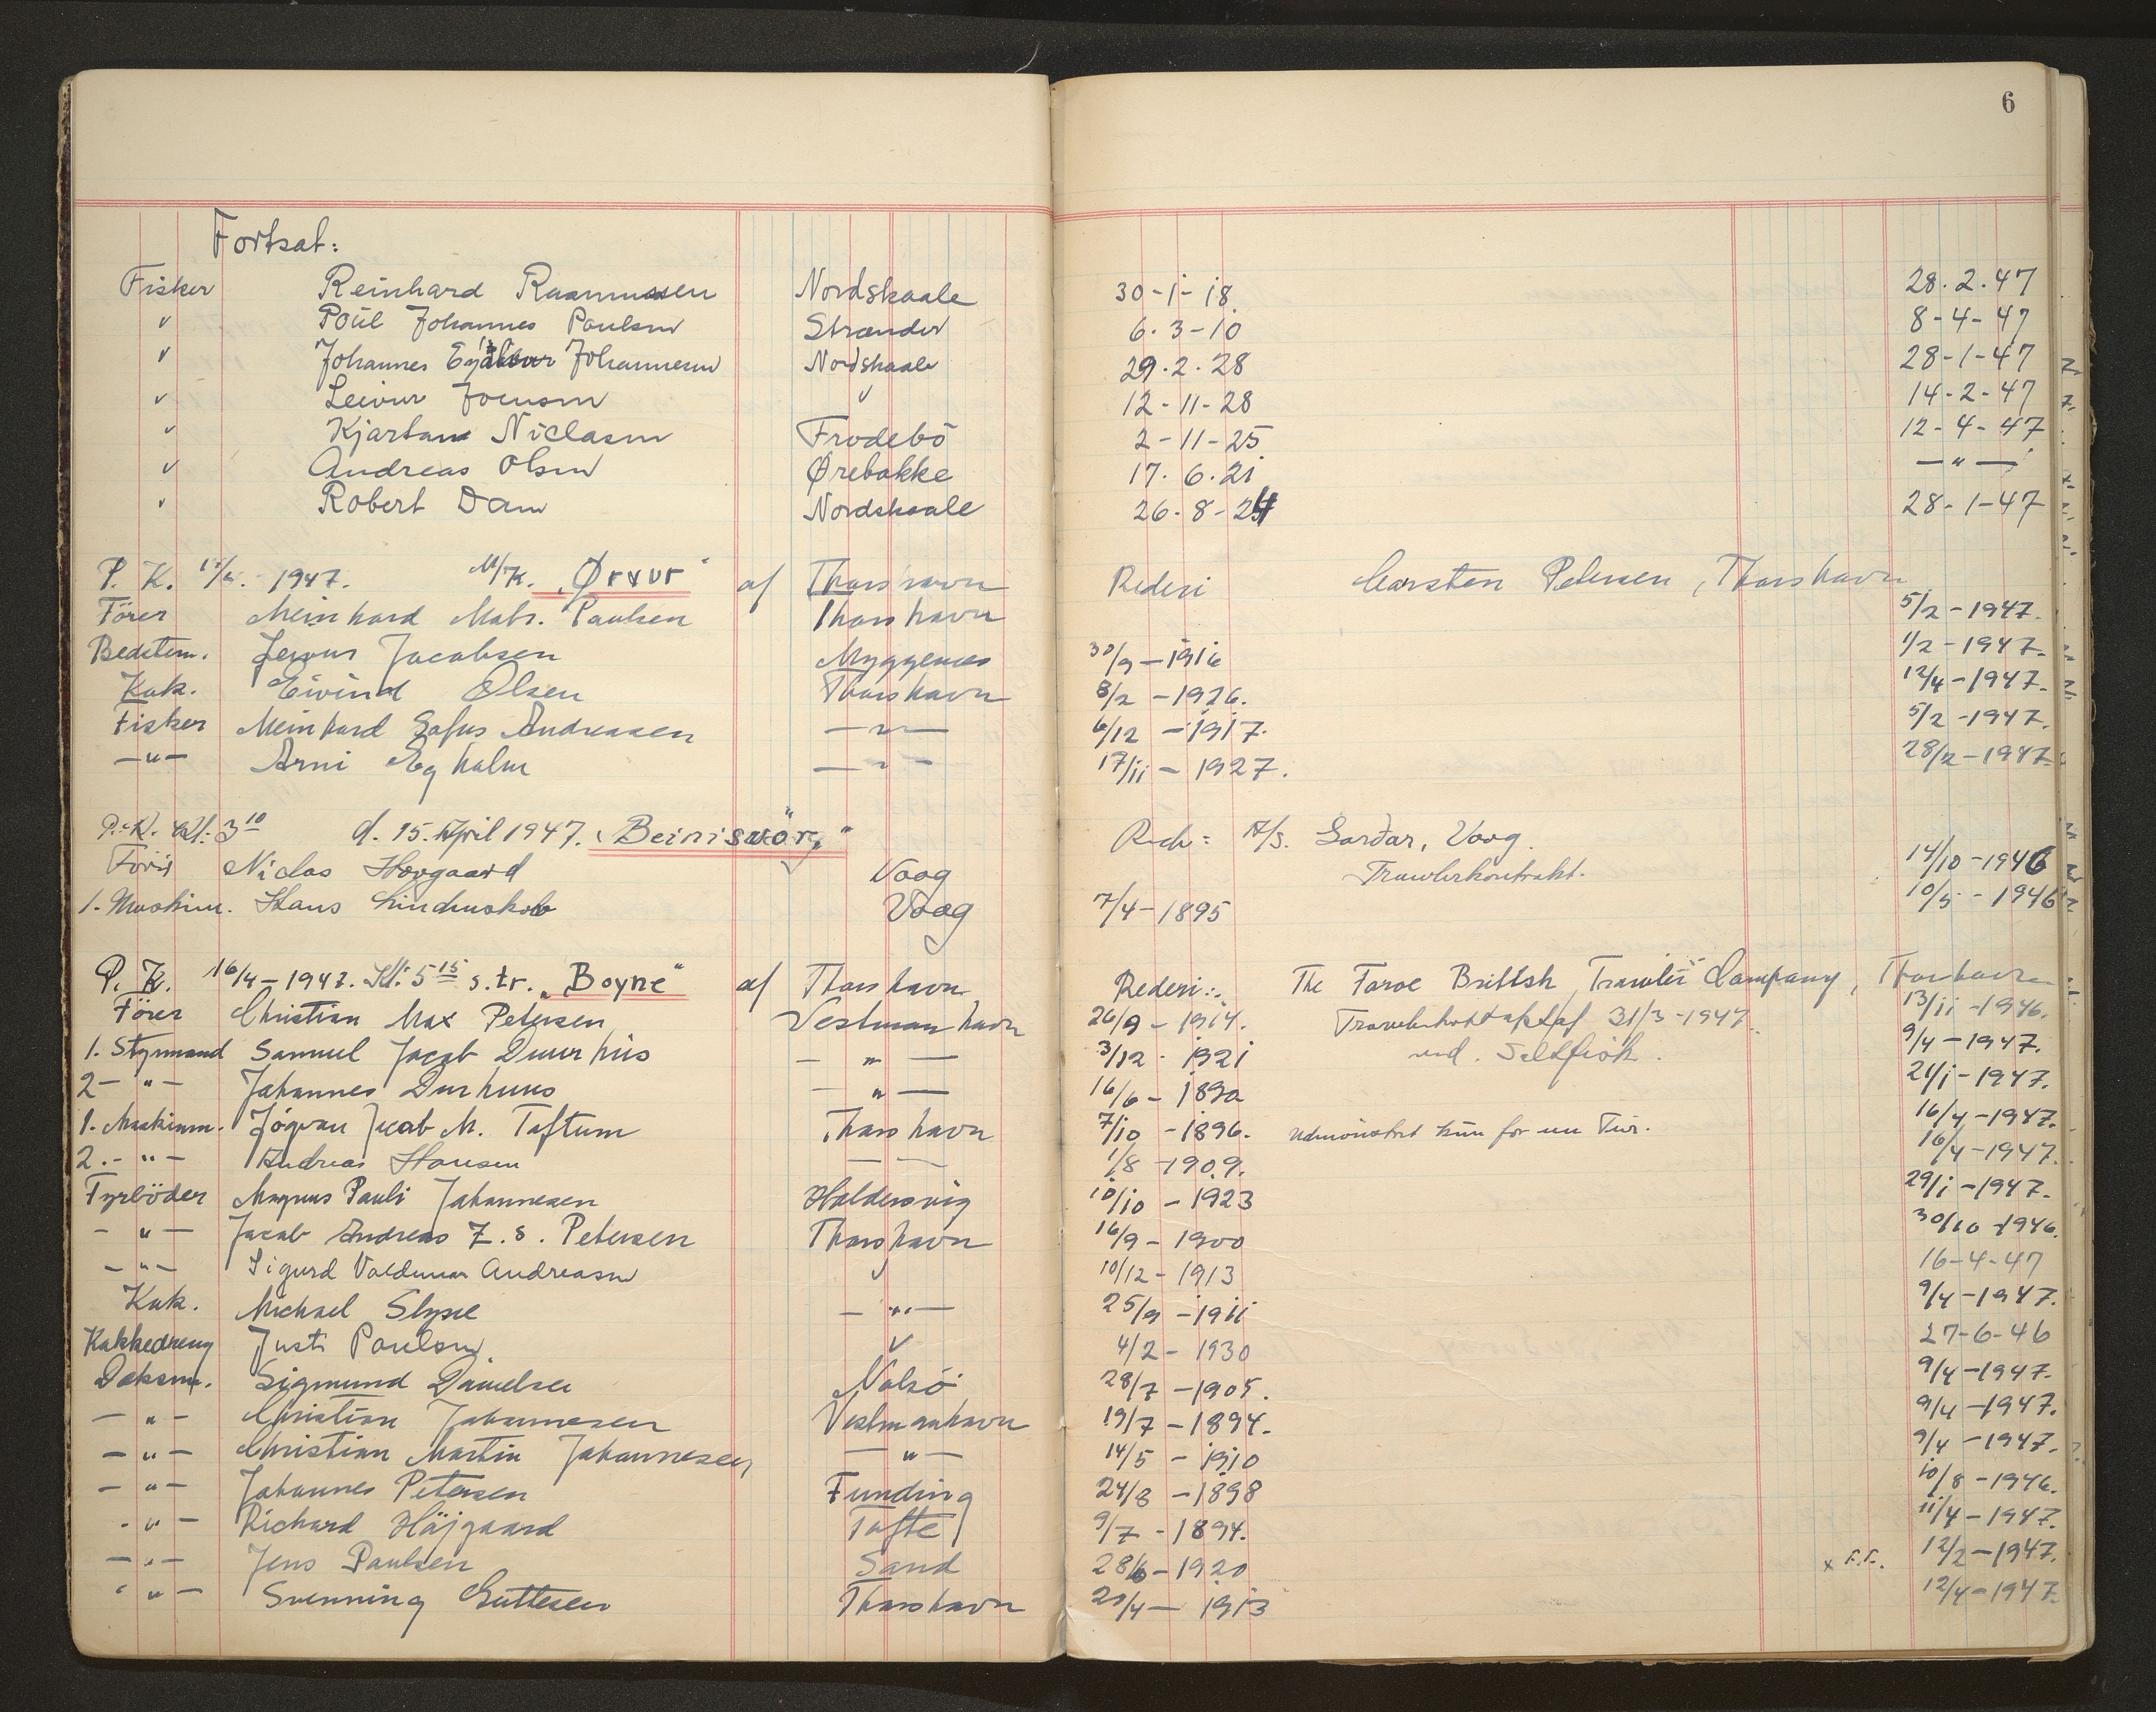 6
Fortsat:
Fisker Reinhard Rasmussen Nordskaale 30-1-18 28.2.47
v Poul Johannes Poulsen Strænder 6.3-10 8-4-47
v Johannes Johannesen Nordskaale 29.2.28 28-1-47
v Leivur Joensen v 12-11-28 14-2-47
v Kjartan Niclasen Frodebö 2-11-25 12-4-47
v Andreas Olsen Ørebakke 17.6.21 —"—
v Robert Dam Nordskaale 26-8-24 28-1-47
P. K. 1947. M/K. „Ørvur" af Thorshavn Rederi Carsten Petersen, Thorshavn
Förer Meinhard Mabr. Paulsen Thorshavn 5/2-1947.
Bedstem. Jacobsen Myggenæs 30/9-1916 1/2-1947.
Kok. Eivind Olsen Thorshavn 8/2-1926. 12/4-1947.
Fisker Meinhard Sofus Andreasen —"— 6/12-1917. 5/2-1947.
—"— Arni Egholm —"— 17/11-1927. 28/2-1947
P.K. Kl. 3 10 d. 15. April 1947. „Beinisvörð" Red: A/S. Garðar, Voog.
Niclas Hovgaard Voog Trawlerkontrakt. 14/10-1946
1. Maskin. Hans Lindenskov Voag 7/4-1895 10/5-1946
P. K. 16/4-1947. Kl. 5 15 s.tr. „Boyne" af Thorshavn Rederi: The Faroe British Trawler Company, Thorshavn
Förer Christian Max Petersen Vestmanhavn 26/9-1914. 31/3-1947. 13/11-1946.
1. Styrmand Samuel Jacob Duurhüs —"— 3/12-1921 9/4-1947.
2—"— Johannes Durhuus —"— 16/6-1890 21/1-1947.
1. Maskinm. Jógvan Jacob M. Toftum Thorshavn 7/10-1896. Udmönstret kun for en Tur. 16/4-1947.
2.-"- Andreas Hansen —"— 1/8-1909. 16/4-1947.
Fyrböder Magnus Pauli Johannesen Haldersvig 10/10-1923 29/1-1947.
-"- Jacob Andreas Z. S. Petersen Thorshavn 16/9-1900 30/10-1946.
-"- Sigurd Valdemar Andreasen v 10/12-1913 16-4-47
Kok. Michael Slyne —"— 25/9-1911 9/4-1947.
Kokkedreng Just Poulsen v 4/2-1930 27-6-46
Daksm. Sigmund Danielsen Nolsö 28/7-1905. 9/4-1947.
—"— Christian Johannesen Vestmanhavn 19/7-1894. 9/4-1947.
—"— Christian Martin Johannesen —"— 14/5-1910 9/4-1947.
—"— Johannes Petersen Funding 24/8-1898 10/8-1946.
-"- Richard Höjgaard Tofte 9/7-1894. 11/4-1947.
—"— Jens Paulsen Sand 28/6-1920 x F.F. 12/2-1947.
"— Svenning Guttesen Thorshavn 20/4-1913 12/4-1947